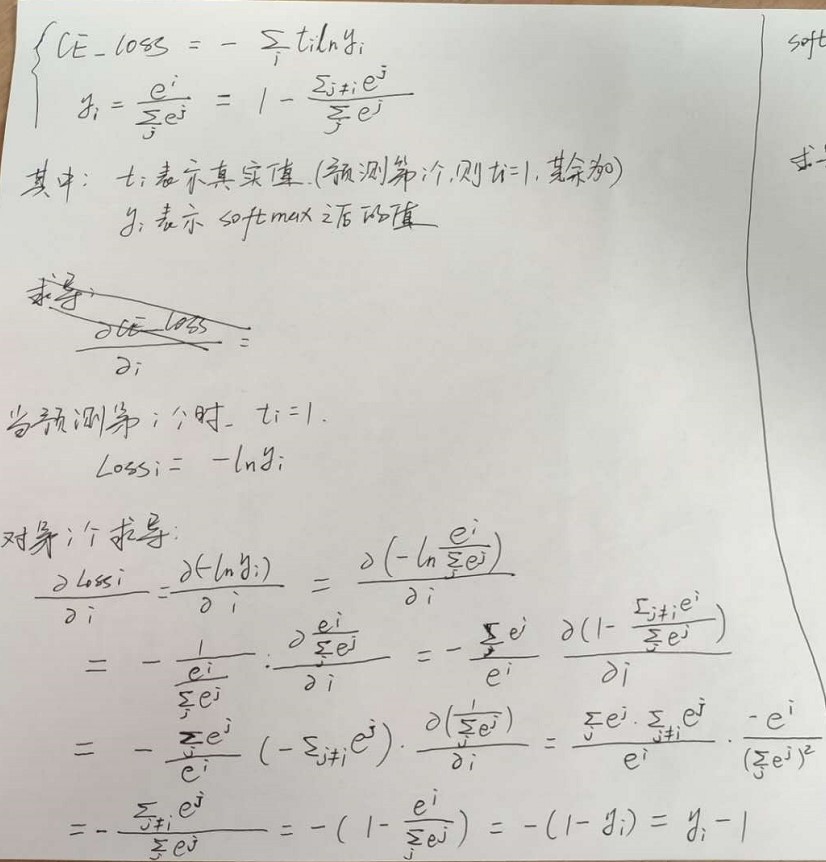 CE_loss = - Σ_i t_i ln y_i
y_i = e^i / Σ_j e^j = 1 - Σ_{j≠i} e^j / Σ_j e^j
其中: t_i 表示真实值.(预测第i个,则 t_i=1, 其余为0)
y_i 表示 softmax 之后的值
求导:
∂CE_loss / ∂i =
当预测第 i 个时_ t_i = 1.
Loss_i = -ln y_i
对第 i 个求导:
∂Loss_i / ∂i = ∂(-ln y_i) / ∂i = ∂(-ln e^i / Σ_j e^j) / ∂i
= - 1 / (e^i / Σ_j e^j) · ∂(e^i / Σ_j e^j) / ∂i = - Σ_j e^j / e^i ∂(1 - Σ_{j≠i} e^i / Σ_j e^j) / ∂i
= - Σ_j e^j / e^i (-Σ_{j≠i} e^j) · ∂(1 / Σ_j e^j) / ∂i = Σ_j e^j · Σ_{j≠i} e^j / e^i · -e^i / (Σ_j e^j)²
= - Σ_{j≠i} e^j / Σ_j e^j = -(1 - e^i / Σ_j e^j) = -(1 - y_i) = y_i - 1
soft
求